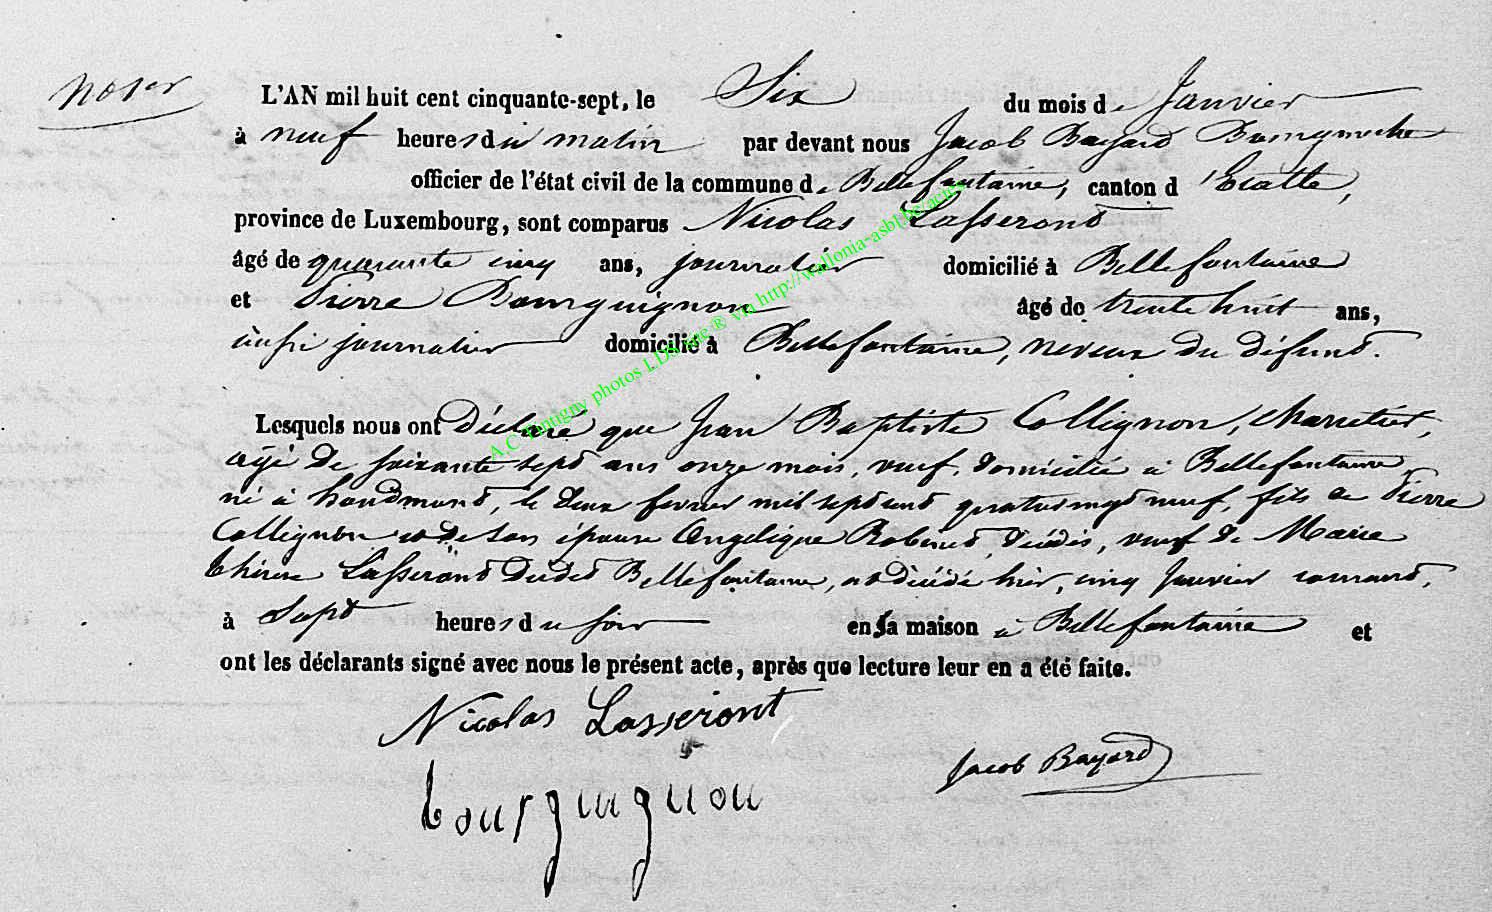 L'AN mil huit cent cinquante-sept, le Six du mois de Janvier
à neuf heures du matin par devant nous Jacob Bayard Bourgmestre
officier de l'état civil de la commune de Bellefontaine, canton d'Etalle,
province de Luxembourg, sont comparus Nicolas Lasseront
âgé de quarante cinq ans, journalier domicilié à Bellefontaine
et Pierre Bourguignon âgé de trente huit ans,
aussi journalier domicilié à Bellefontaine, neveux du défunt.
Lesquels nous ont Déclaré que Jean Baptiste Collignon, charretier,
agé de soixante sept ans onze mois, veuf, domicilié à Bellefontaine
né à houdmond, le deux fevrier mil sept cent quatrevingt neuf, fils de Pierre
Collignon et de son épouse Angelique Robinet, décédés, veuf de Marie
thérèse Lasseront dudit Bellefontaine, est décédé hier, cinq Janvier courant,
à Sept heures du soir en sa maison à Bellefontaine et
ont les déclarants signé avec nous le présent acte, après que lecture leur en a été faite.
Nicolas Lasseront
Jacob Bayard
bourguignon
A.C. Tintigny photos LDS site ® via http://wallonia-asbl.be/actes